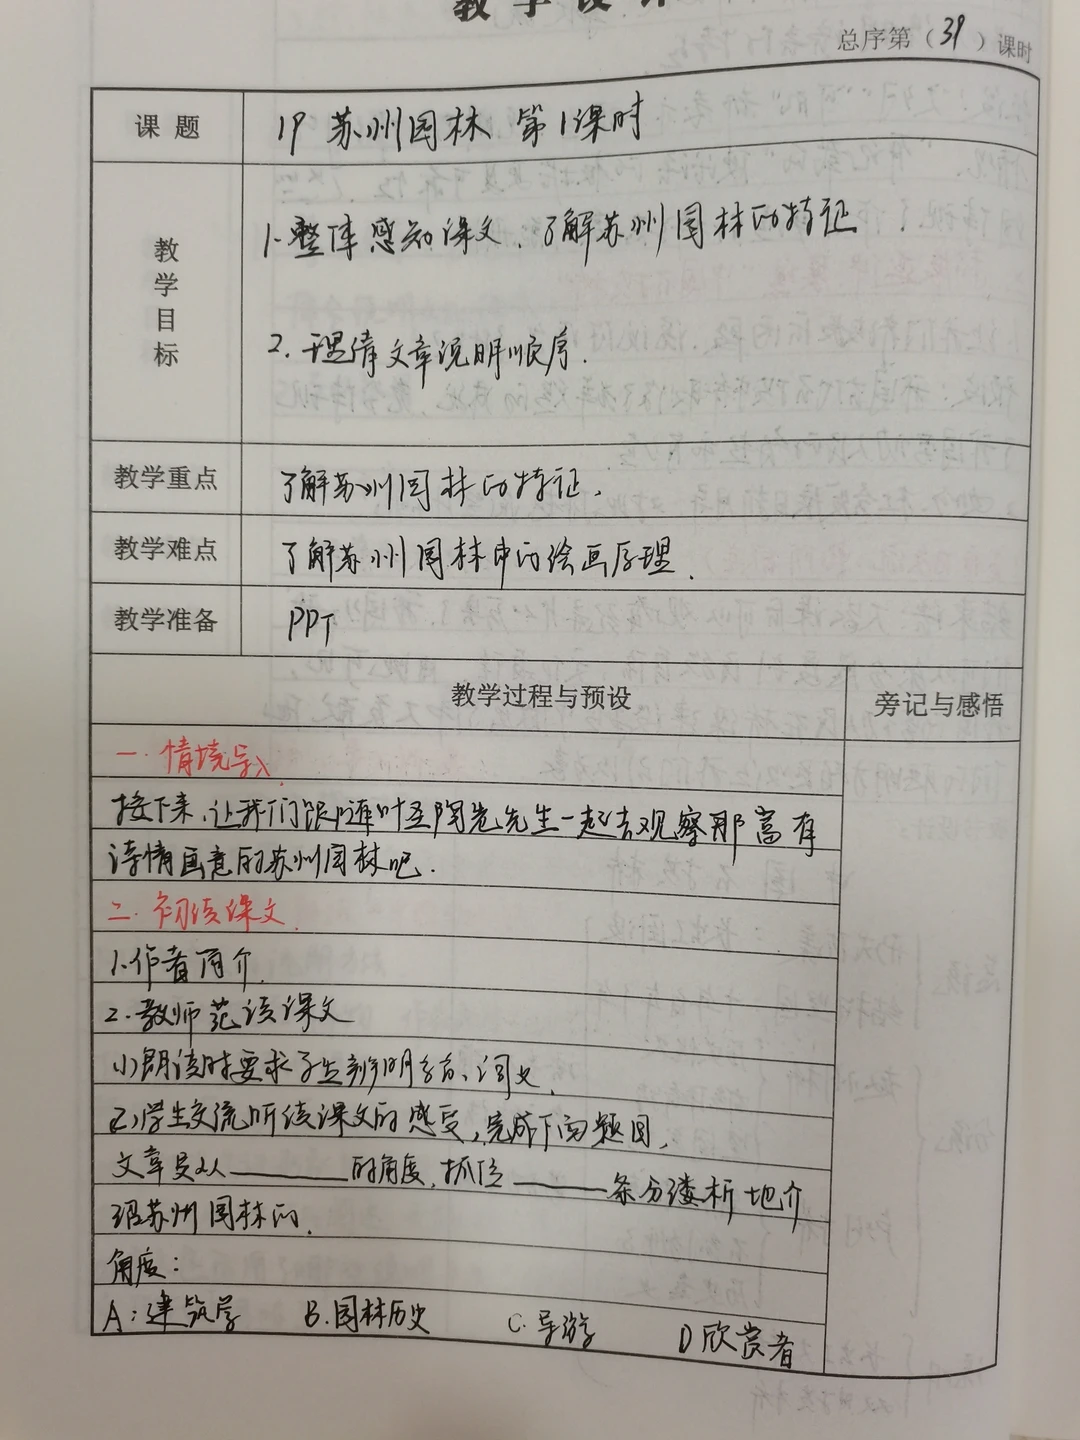 教学设计
总序第（39）课时
课题
19 苏州园林 第1课时
教学目标
1. 整体感知课文，了解苏州园林的特征.
2. 理清文章说明顺序.
教学重点
了解苏州园林的特征.
教学难点
了解苏州园林中的绘画原理.
教学准备
PPT
教学过程与预设
旁记与感悟
一. 情境导入
接下来，让我们跟随叶圣陶先生一起去观察那富有
诗情画意的苏州园林吧.
二. 初读课文.
1. 作者简介.
2. 教师范读课文
(1)朗读时要求学生辨明字音、词义.
(2)学生交流听读课文的感受，完成下面题目.
文章是从______的角度，抓住______条分缕析地介
绍苏州园林的.
角度：
A：建筑学 B.园林历史 C.导游 D欣赏者